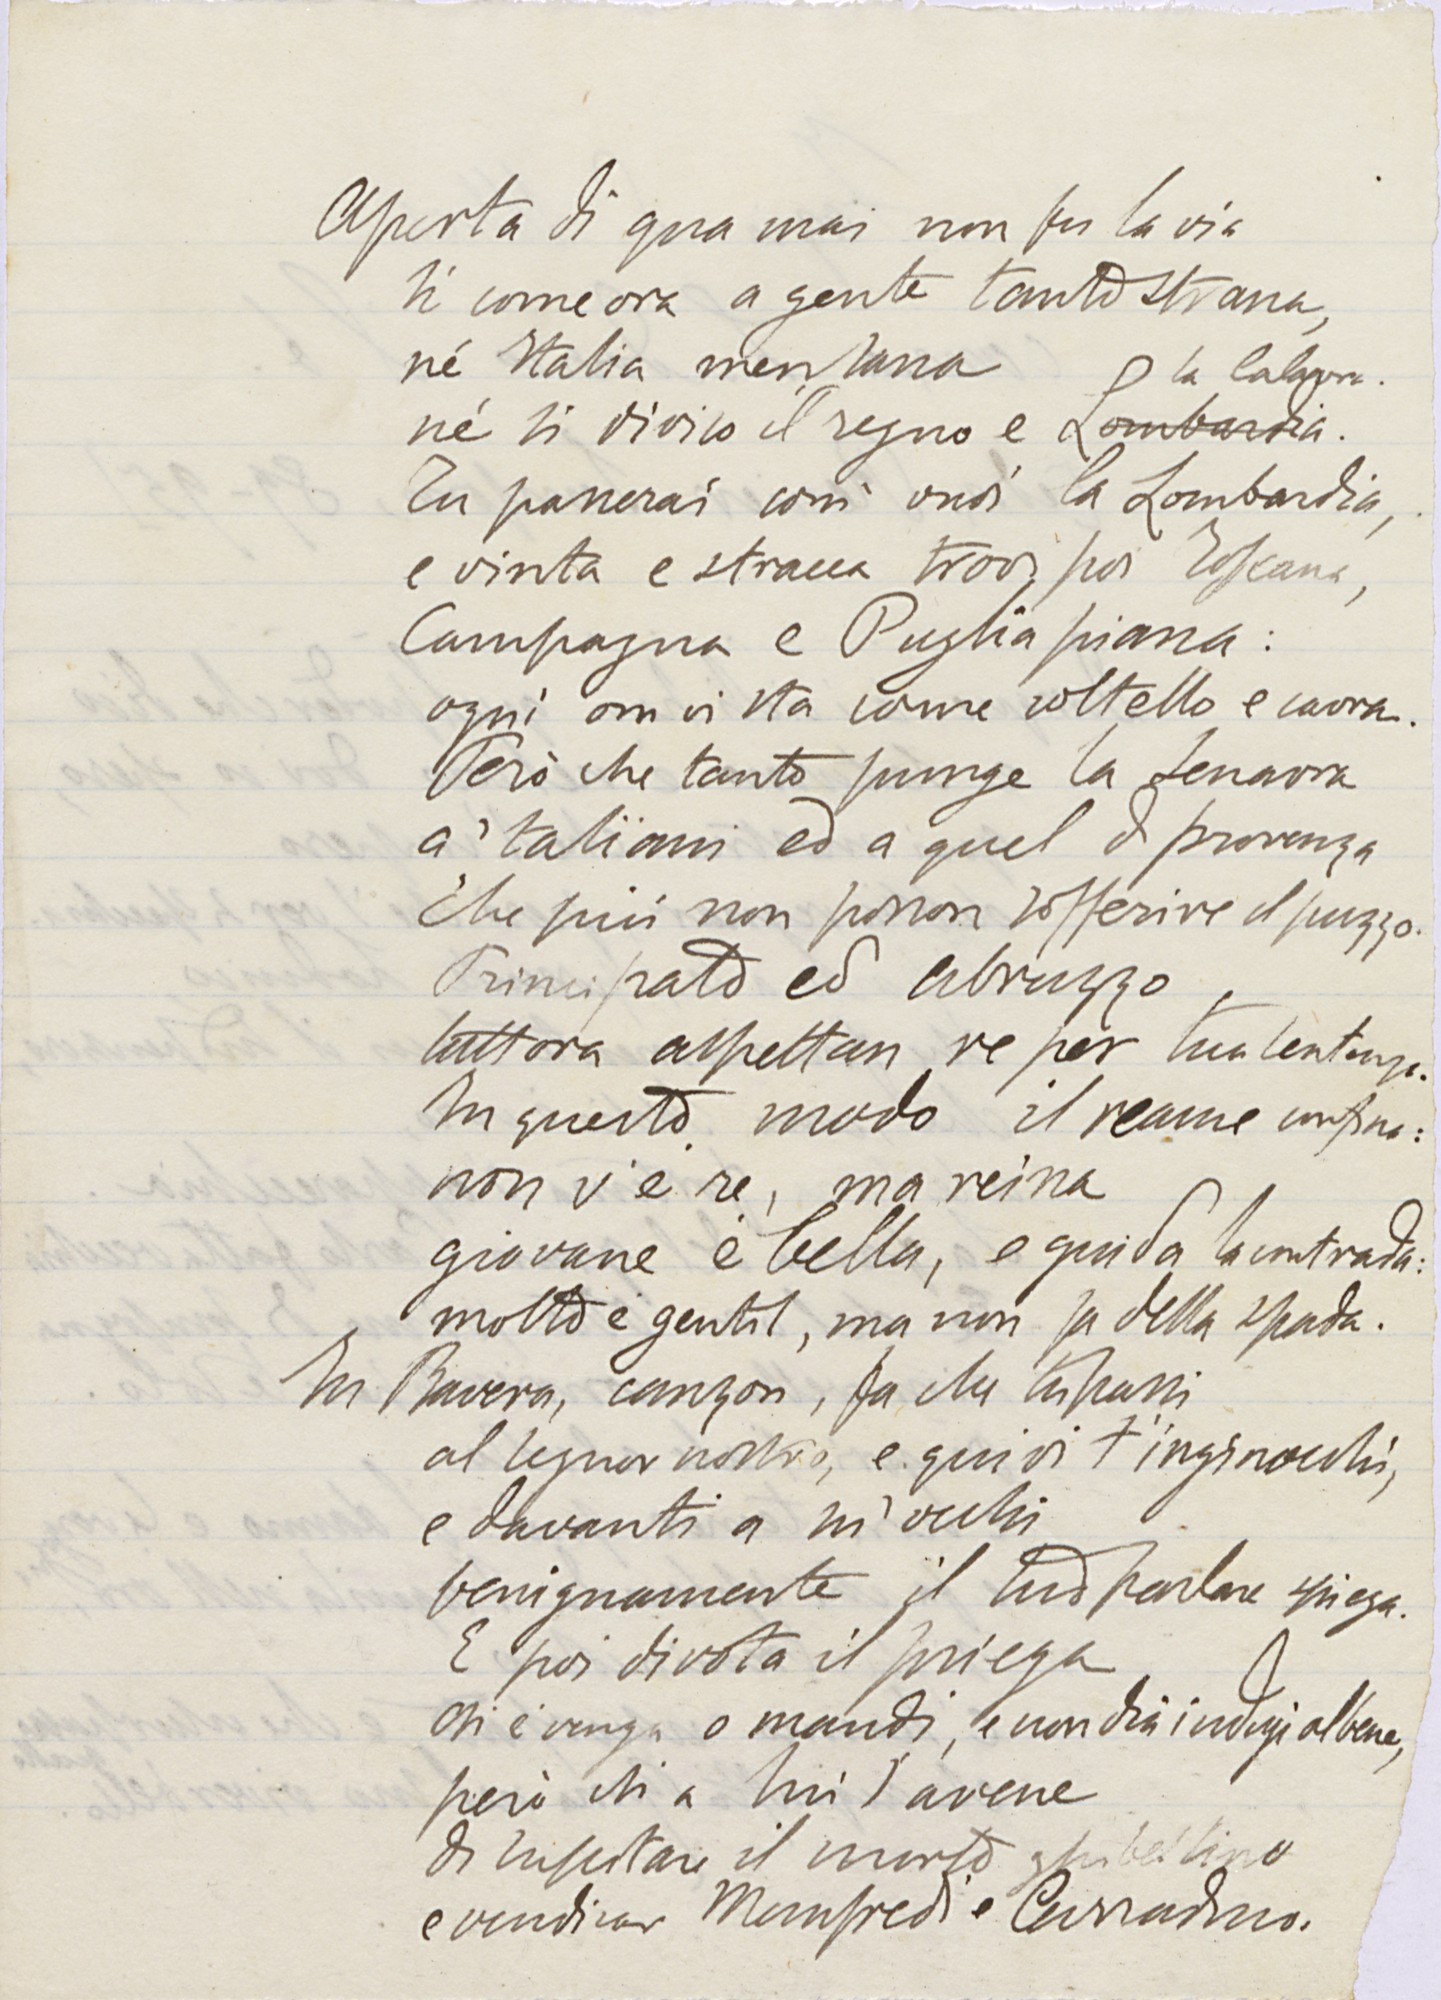 Aperta di qua mai non fu la via
sì come ora a gente tanto strana,
né Italia men sana
e la Calavra.
né sì diviso il regno e Lombardia.
Tu passerai così quasi la Lombardia,
e vinta e stracca trovi poi Toscana,
Campagna e Puglia piana:
ogni om vi sta come coltello e cavra.
Però che tanto punge la senavra
a' taliani ed a quel di Provenza
che più non posson sofferire il puzzo.
Principato ed Abruzzo
tuttora aspettan re per tua lentenza.
In questo modo il reame confina:
non v'è re, ma reina
giovane è bella, e guida la contrada:
molto è gentil, ma non fa della spada.
In Bavera, canzon, fa che tu passi
al segnor nostro, e quivi t'inginocchi,
e davanti a su' occhi
benignamente il tuo parlare spiega.
E poi divota il priega
ch'i' venga o mandi, e non dia indugi al bene,
però ch'a lui s'avene
di suscitare il morto ghibellino
e vendicar Manfredi e Curradino.